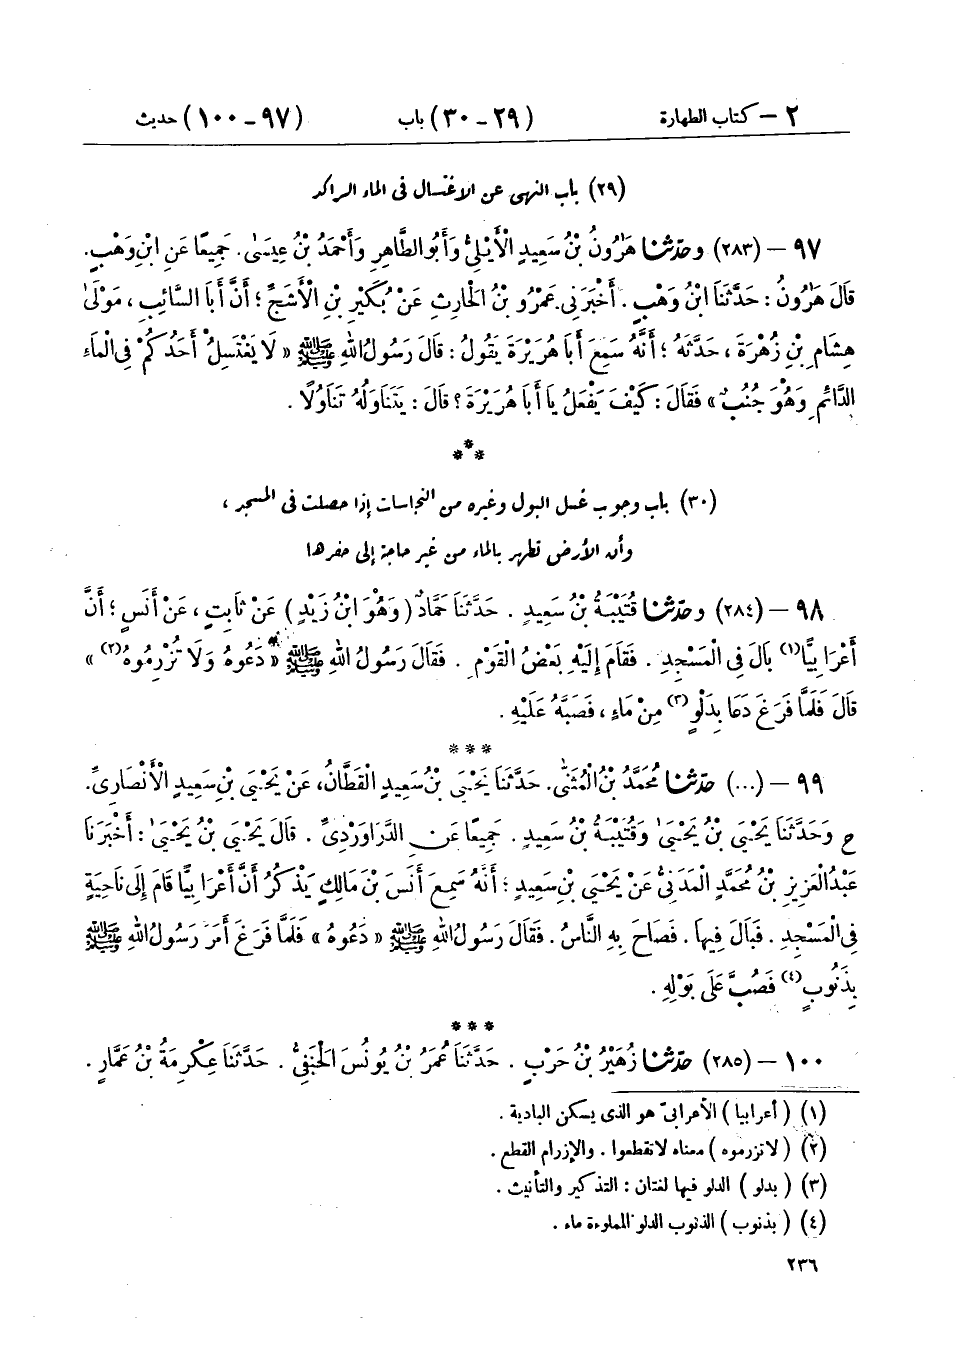 ٢ – كتاب الطهارة (٢٩ - ٣٠) باب (٩٧ - ١٠٠) حديث
(٢٩) باب النهى عن الاغتسال فى الماء الراكد
٩٧ – (٢٨٣) وحَدَّثَنَا هَٰرُونُ بْنُ سَعِيدٍ الْأَيْلِيُّ وَأَبُو الطَّاهِرِ وَأَحْمَدُ بْنُ عِيسَىٰ. جَمِيعًا عَنِ ابْنِ وَهْبٍ.
قَالَ هَٰرُونُ : حَدَّثَنَا ابْنُ وَهْبٍ . أَخْبَرَنِي عَمْرُو بْنُ الْحَارِثِ عَنْ بُكَيْرِ بْنِ الْأَشَجِّ ؛ أَنَّ أَبَا السَّائِبِ ، مَوْلَىٰ
هِشَامِ بْنِ زُهْرَةَ ، حَدَّثَهُ ؛ أَنَّهُ سَمِعَ أَبَا هُرَيْرَةَ يَقُولُ : قَالَ رَسُولُ اللهِ ﷺ « لَا يَغْتَسِلْ أَحَدُكُمْ فِي الْمَاءِ
الدَّائِمِ وَهُوَ جُنُبٌ » فَقَالَ : كَيْفَ يَفْعَلُ يَا أَبَا هُرَيْرَةَ ؟ قَالَ : يَتَنَاوَلُهُ تَنَاوُلًا .
***
(٣٠) باب وجوب غسل البول وغيره من النجاسات إذا حصلت فى المسجد ،
وأن الأرض تطهر بالماء من غير حاجة إلى حفرها
٩٨ – (٢٨٤) وحَدَّثَنَا قُتَيْبَةُ بْنُ سَعِيدٍ . حَدَّثَنَا حَمَّادٌ ( وَهُوَ ابْنُ زَيْدٍ ) عَنْ ثَابِتٍ ، عَنْ أَنَسٍ ؛ أَنَّ
أَعْرَابِيًّا(١) بَالَ فِي الْمَسْجِدِ . فَقَامَ إِلَيْهِ بَعْضُ الْقَوْمِ . فَقَالَ رَسُولُ اللهِ ﷺ « دَعُوهُ وَلَا تُزْرِمُوهُ(٢) »
قَالَ فَلَمَّا فَرَغَ دَعَا بِدَلْوٍ(٣) مِنْ مَاءٍ ، فَصَبَّهُ عَلَيْهِ .
***
٩٩ – (...) حَدَّثَنَا مُحَمَّدُ بْنُ الْمُثَنَّىٰ. حَدَّثَنَا يَحْيَىٰ بْنُ سَعِيدٍ الْقَطَّانُ، عَنْ يَحْيَىٰ بْنِ سَعِيدٍ الْأَنْصَارِيِّ.
ح وَحَدَّثَنَا يَحْيَىٰ بْنُ يَحْيَىٰ وَقُتَيْبَةُ بْنُ سَعِيدٍ . جَمِيعًا عَنِ الدَّرَاوَرْدِيِّ . قَالَ يَحْيَىٰ بْنُ يَحْيَىٰ : أَخْبَرَنَا
عَبْدُ الْعَزِيزِ بْنُ مُحَمَّدٍ الْمَدَنِيُّ عَنْ يَحْيَىٰ بْنِ سَعِيدٍ ؛ أَنَّهُ سَمِعَ أَنَسَ بْنَ مَالِكٍ يَذْكُرُ أَنَّ أَعْرَابِيًّا قَامَ إِلَى نَاحِيَةٍ
فِي الْمَسْجِدِ . فَبَالَ فِيهَا . فَصَاحَ بِهِ النَّاسُ . فَقَالَ رَسُولُ اللهِ ﷺ « دَعُوهُ » فَلَمَّا فَرَغَ أَمَرَ رَسُولُ اللهِ ﷺ
بِذَنُوبٍ(٤) فَصُبَّ عَلَى بَوْلِهِ .
***
١٠٠ – (٢٨٥) حَدَّثَنَا زُهَيْرُ بْنُ حَرْبٍ . حَدَّثَنَا عُمَرُ بْنُ يُونُسَ الْحَنَفِيُّ . حَدَّثَنَا عِكْرِمَةُ بْنُ عَمَّارٍ .
(١) ( أعرابيا ) الأعرابىّ هو الذى يسكن البادية .
(٢) ( لا تزرموه ) معناه لا تقطعوا . والإزرام القطع .
(٣) ( بدلو ) الدلو فيها لغتان : التذكير والتأنيث .
(٤) ( بذنوب ) الذنوب الدلو المملوءة ماء .
٢٣٦